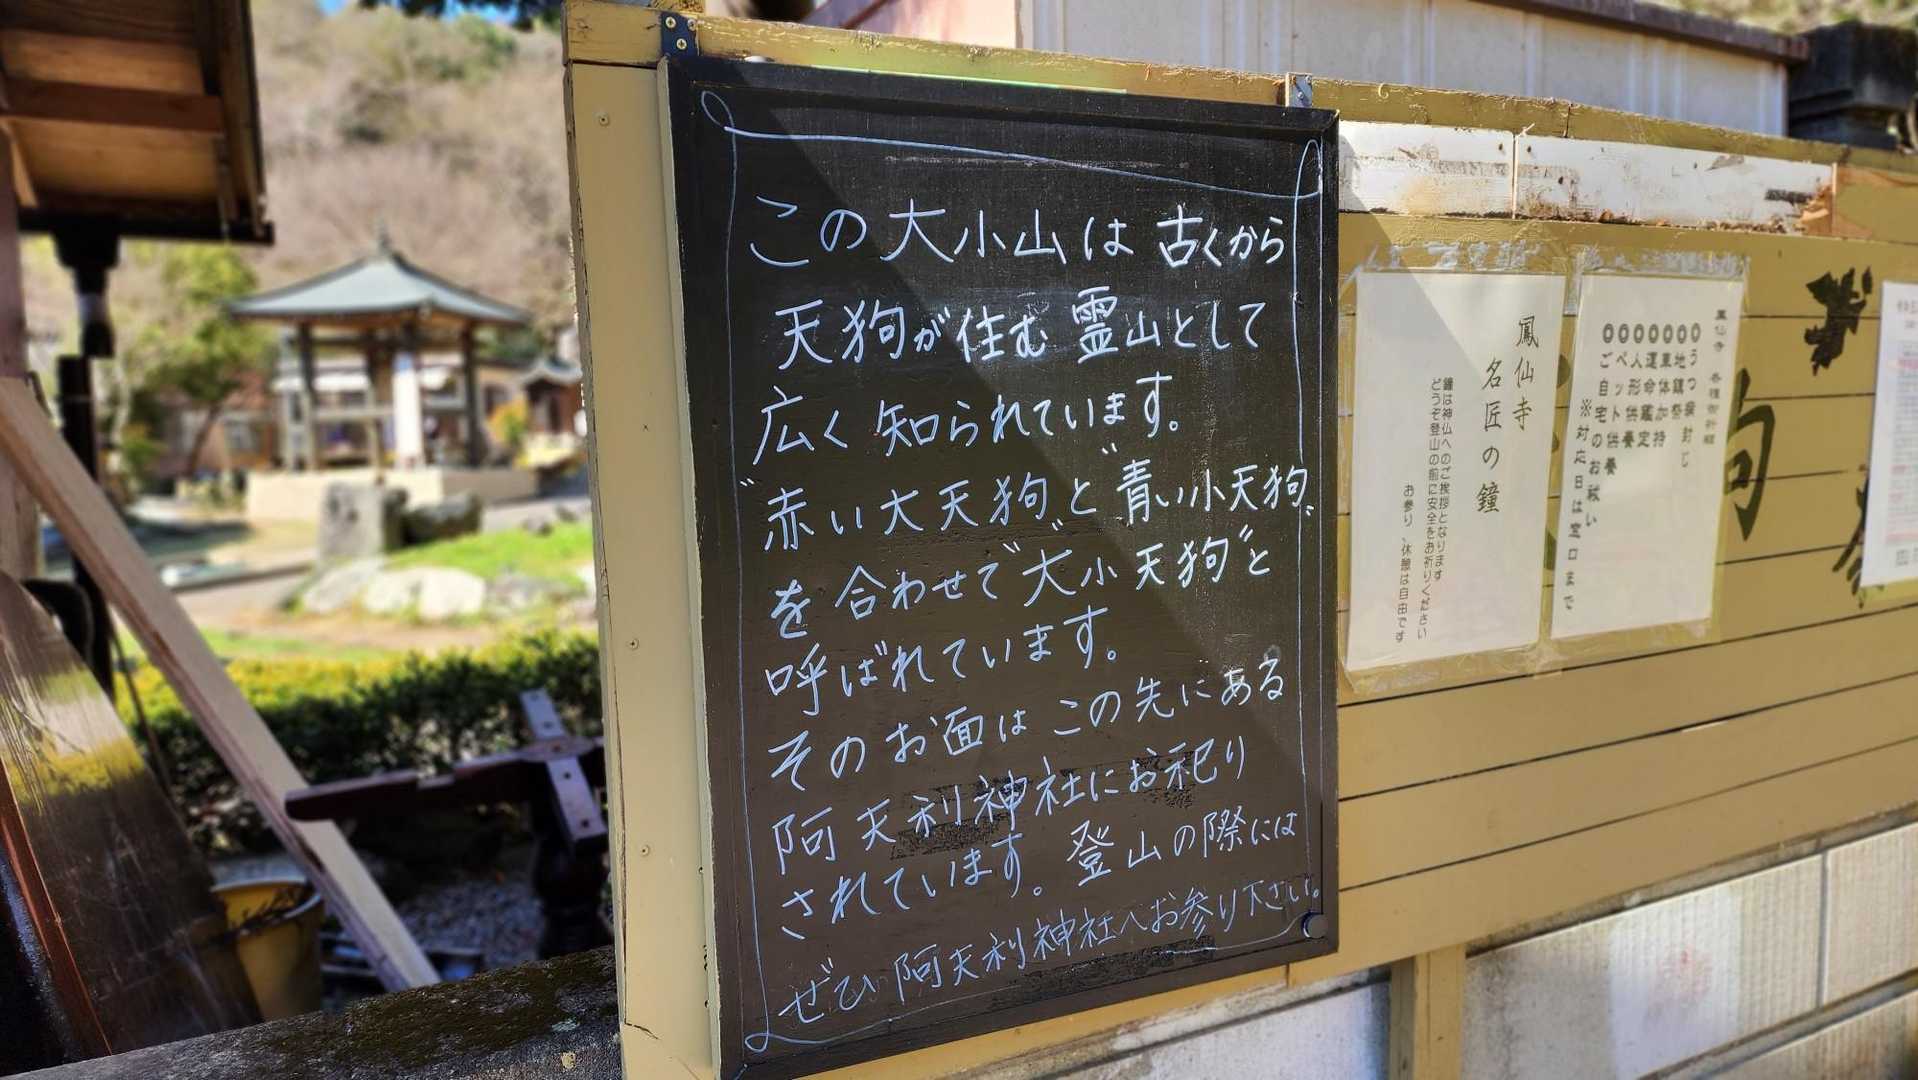 この大小山は古くから
天狗が住む霊山として
広く知られています。
"赤い大天狗"と"青い小天狗"
を合わせて"大小天狗"と
呼ばれています。
そのお面はこの先にある
阿夫利神社にお祀り
されています。登山の際には
ぜひ阿夫利神社へお参り下さい。
鳳仙寺
名匠の鐘
鐘は神仏へのご挨拶となります
どうぞ登山の前に安全をお祈りください
お参り、休憩は自由です
鳳仙寺 各種御祈祷
●うつ病封じ
●地鎮祭
●車体加持
●運命鑑定
●人形供養
●ペット供養
●ご自宅のお祓い
※対応日は窓口まで
狗